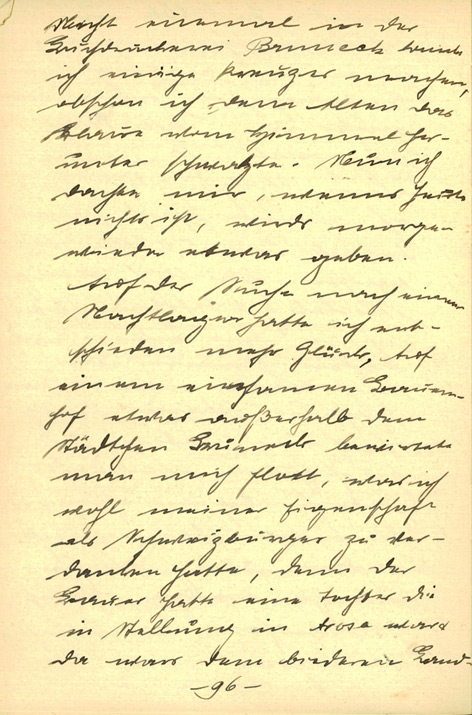 Nicht einmal in der
Buchdruckerei Bruneck konnte
ich einige Kreuzer machen,
obschon ich dem Alten das
Blaue vom Himmel her-
unter schwatzte. Nun ich
dachte mir, wenns heute
nichts ist, wirds morgen
wieder etwas geben.
Auf der Suche nach einem
Nachtlager hatte ich ent-
schieden mehr Glück, Auf
einem einsamen Bauern-
hof etwas außerhalb dem
Städtchen Bruneck bewirtete
man mich flott, was ich
wohl meiner Eigenschaft
als Schweizbürger zu ver-
danken hatte, denn der
Bauer hatte eine Tochter die
in Stellung in Arosa war
da was dem biederen Land-
-96-